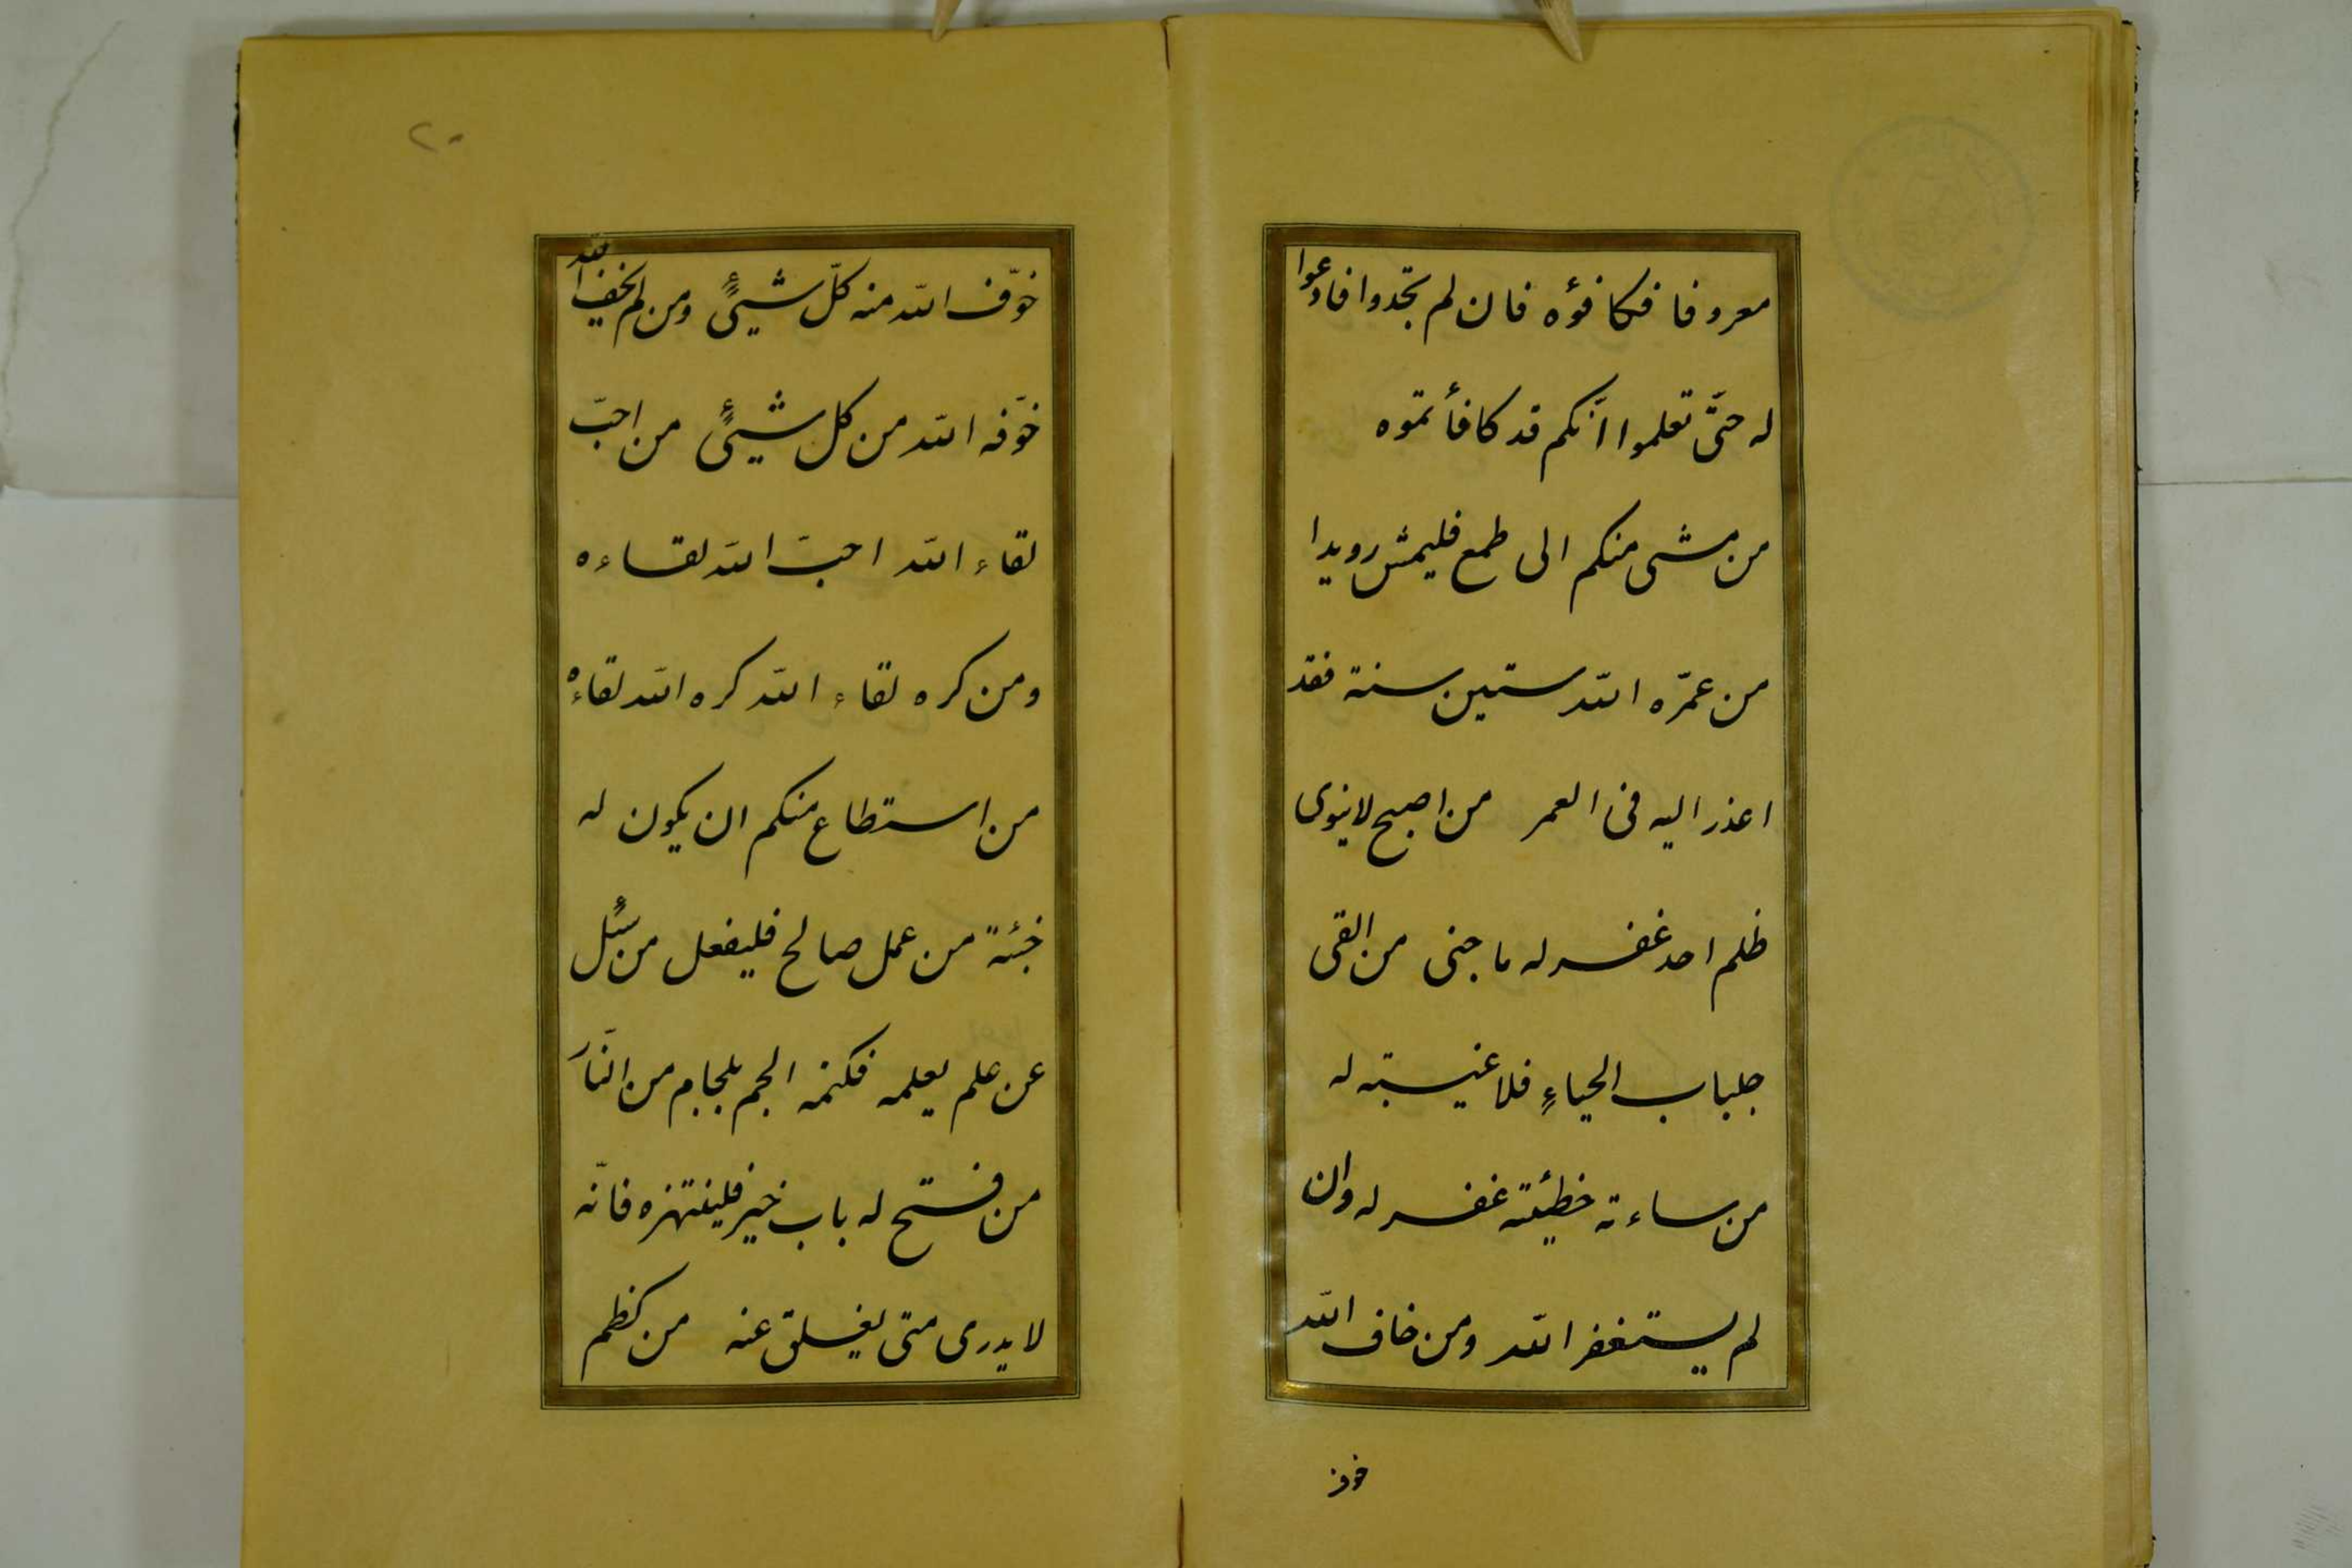 معروفا فكافؤه فان لم تجدوا فادعوا
له حتّى تعلموا انّكم قد كافأتموه
من مشى منكم الى طمع فليمش رويدا
من عمّره الله ستين سنة فقد
اعذر اليه فى العمر من اصبح لا ينوى
ظلم احد غفر له ما جنى من القى
جلباب الحياءِ فلا غيبته له
من ساءته خطيئته غفر له وان
لم يستغفر الله ومن خاف الله
خوف
٢٠
خوّف الله منه كلّ شيئٍ ومن لم يخف الله
خوّفه الله من كل شيئٍ من احبّ
لقاء الله احبّ الله لقاءه
ومن كره لقاء الله كره الله لقاءه
من استطاع منكم ان يكون له
خبئة من عمل صالح فليفعل من سئل
عن علم يعلمه فكتمه الجم بلجام من النّار
من فتح له باب خير فلينتهزه فانّه
لا يدرى متى يغلق عنه من كظم